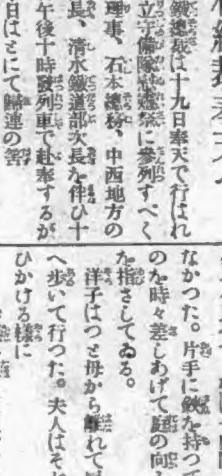 鐵總裁は十九日奉天で行はれ
立守備隊慰靈祭に參列すべく
理事、石本總務、中西地方の
長、清水鐵道部次長を伴ひ十
午後十時發列車で赴奉するが
日はとにて歸連の筈
なかつた。片手に鋏を持つて
のた時々差しあげて庭の向ふ
を指さしてゐる。
洋子はつと母から離れて
へ歩いて行つた。夫人はそ
ひかける樣に